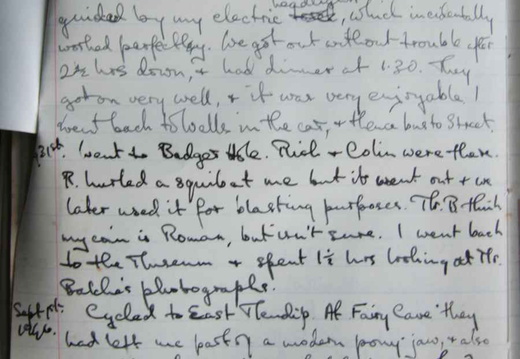 headlight
guided by my electric torch, which incidentally
worked perfectly. We got out without trouble after
2½ hrs down, & had dinner at 1.30. They
got on very well, & it was very enjoyable. I
went back to Wells in the car, & thence bus to Street.
31st. Went to Badger Hole. Rich & Colin were there.
R. hurled a squib at me but it went out & we
later used it for blasting purposes. Mr. B think
my coin is Roman, but isn't sure. I went back
to the Museum & spent 1½ hrs looking at Mr.
Balch's photographs.
Sept 1st. Cycled to East Mendip. At Fairy Cave they
1946. had left me part of a modern pony jaw, & also